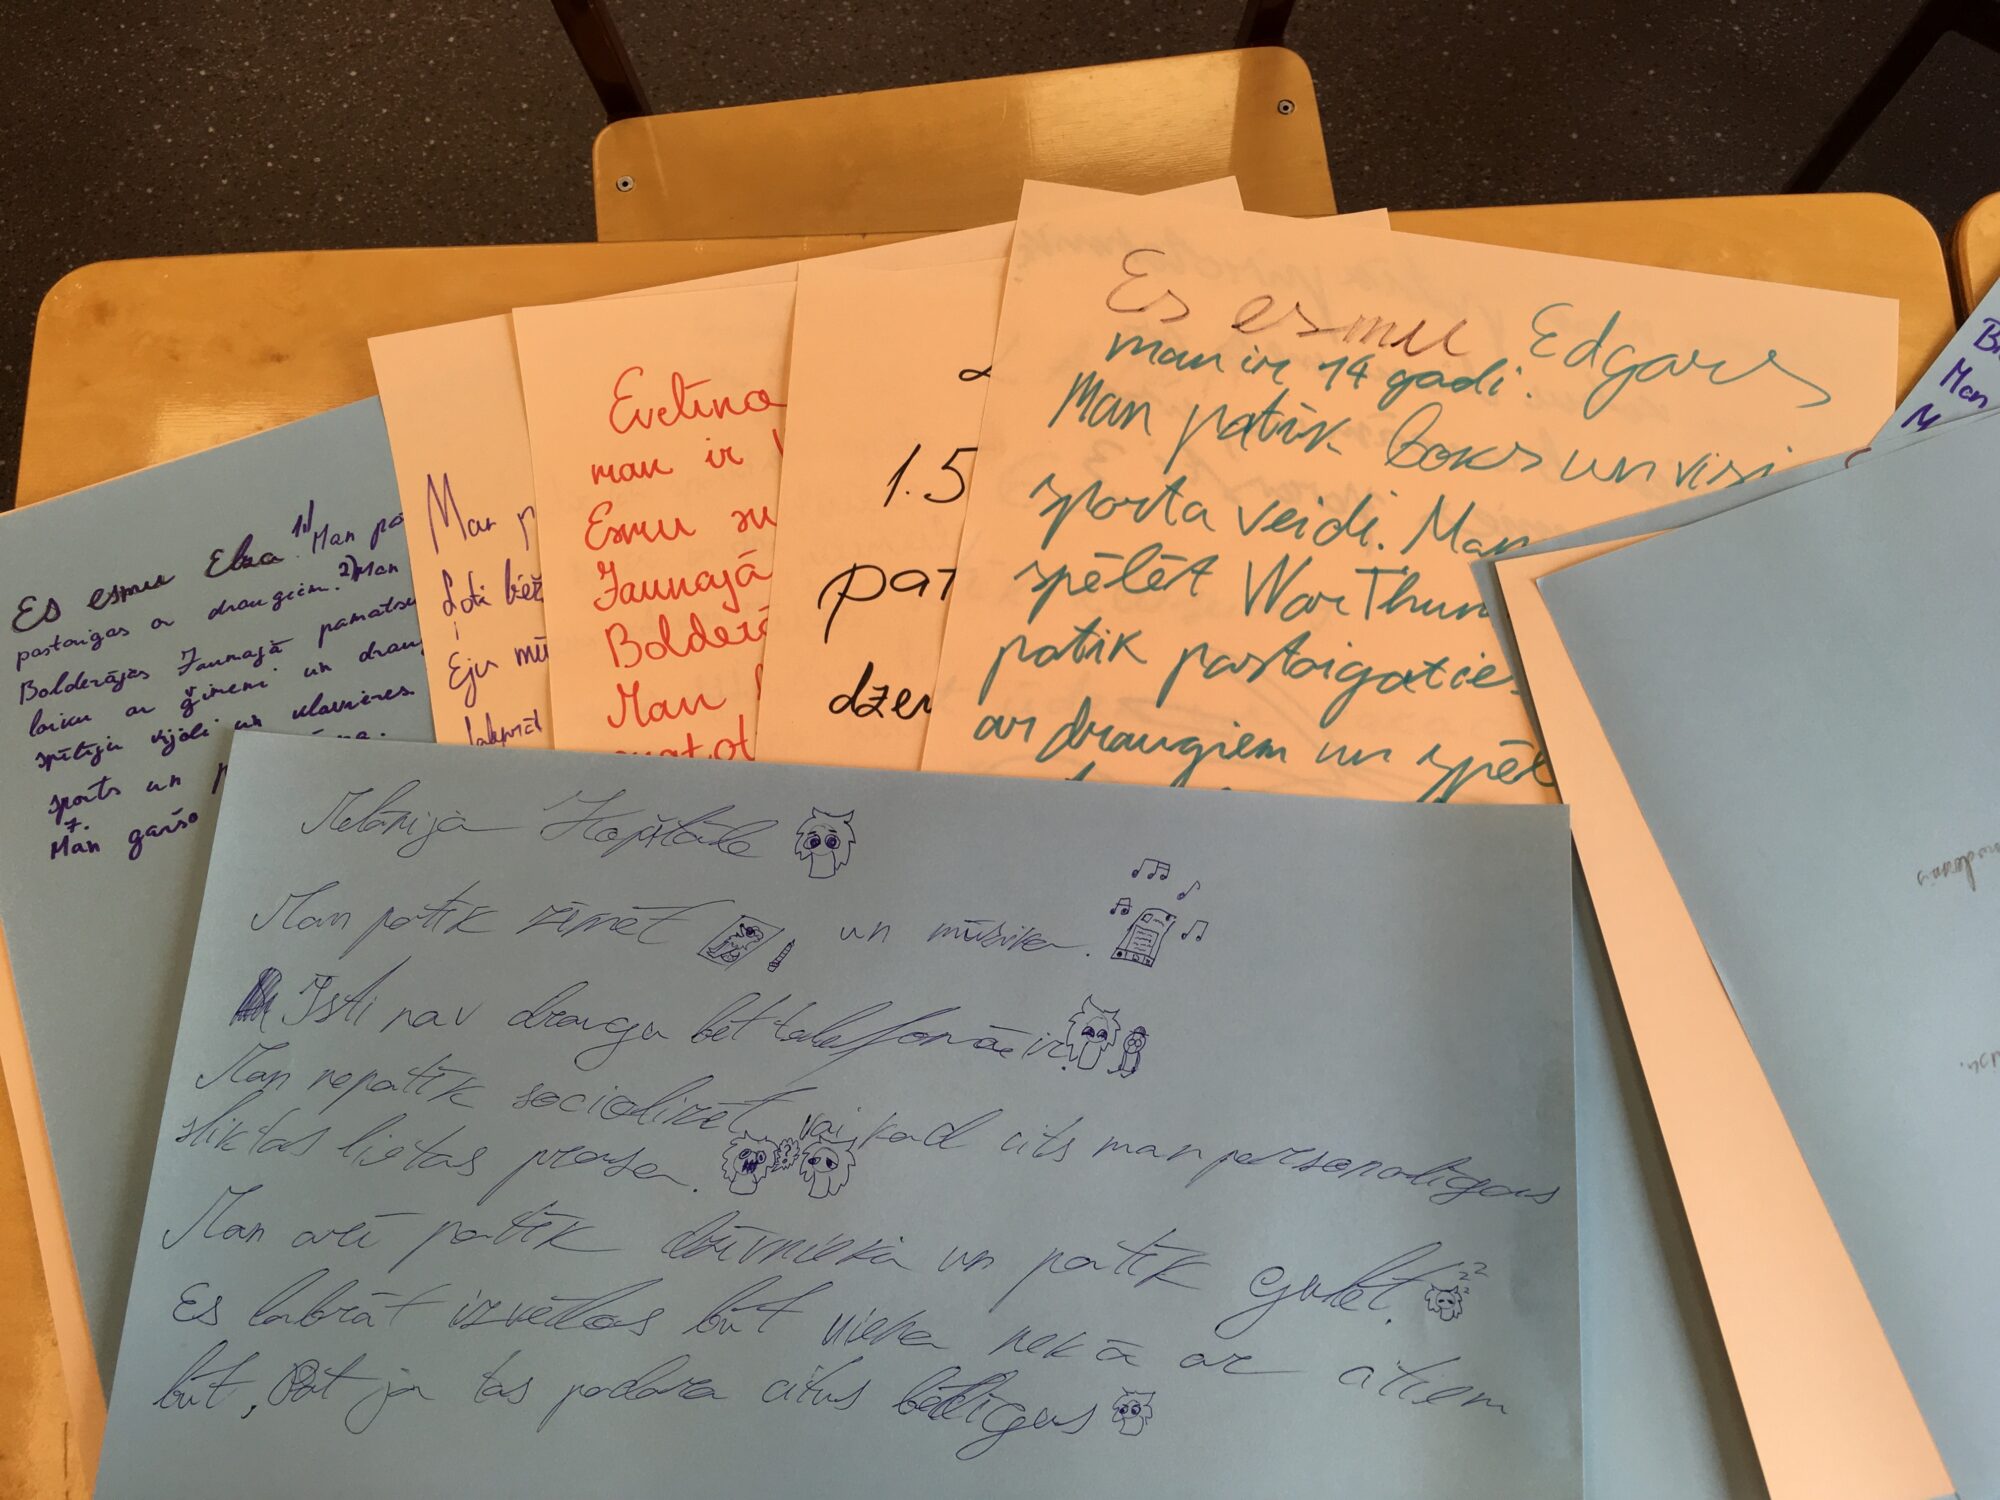 Es esmu Elza. 1) Man pa
pastaigas ar draugiem. 2) Man
Bolderājas Jaunajā pamatsk
laiku ar ģimeni un drau
spēlēju vijoli un klavieres.
sports un p
7.
Man garšo
Man p
Ļoti bēž
Eju mū
labprāt
Evelīna
man ir
Esmu
Jaunajā
Bolderā
Man
1.5
pat
dzer
Es esmu Edgars
man ir 14 gadi.
Man patīk boks un visi
sporta veidi. Man
spēlēt WarThun
patīk pastaigaties
ar draugiem un spēl
Man
Melānija
Man patīk zīmēt un mūzika.
Īsti nav draugu bet telefonā ir.
Man nepatīk socializēt vai kad cits man personalīgas
sliktas lietas prasa.
Man arī patīk dzīvnieki un patīk gulēt.
zzz
Es labrāt izvēlos būt viena nekā ar citiem
būt, pat ja tas padara citus bēdīgus